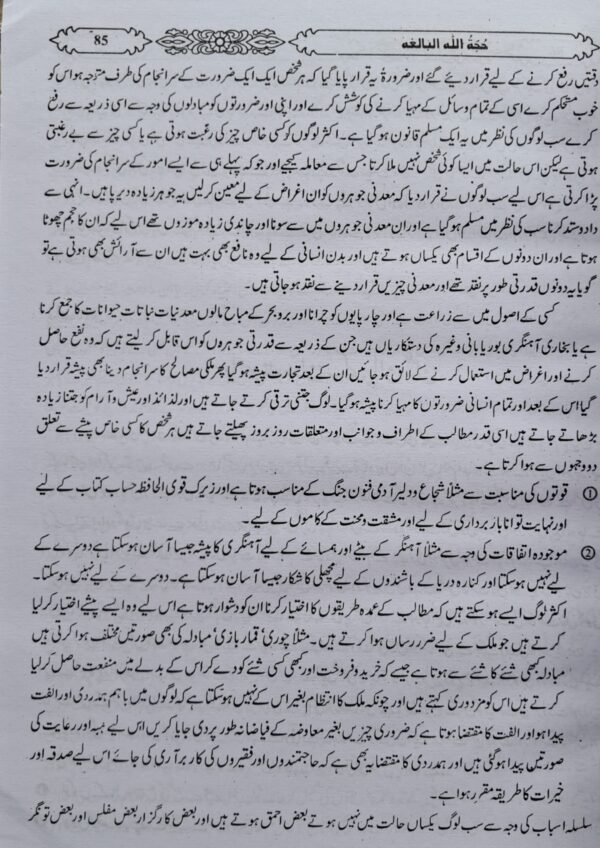 حُجَّةُ اللہ البالغہ
85
دقتیں رفع کرنے کے لیے قرار دیئے گئے اور ضرورۃً یہ قرار پایا گیا کہ ہر شخص ایک ایک ضرورت کے سرانجام کی طرف متوجہ ہو اس کو
خوب مستحکم کرے اسی کے تمام وسائل کے مہیا کرنے کی کوشش کرے اور اپنی اور ضرورتوں کو مبادلوں کی وجہ سے اسی ذریعہ سے رفع
کرے سب لوگوں کی نظر میں یہ ایک مسلم قانون ہو گیا ہے۔ اکثر لوگوں کو کسی خاص چیز کی رغبت ہوتی ہے یا کسی چیز سے بے رغبتی
ہوتی ہے لیکن اس حالت میں ایسا کوئی شخص نہیں ملا کرتا جس سے معاملہ کیجیے اور جو کہ پہلے ہی سے ایسے امور کے سرانجام کی ضرورت
پڑا کرتی ہے اس لیے سب لوگوں نے قرار دیا کہ معدنی جوہروں کو ان اغراض کے لیے معین کر لیں یہ جوہر زیادہ دیر پا ہیں۔ انہی سے
داد و ستد کرنا سب کی نظر میں مسلم ہو گیا ہے اور ان معدنی جوہروں میں سے سونا اور چاندی زیادہ موزوں تھے اس لیے کہ ان کا حجم چھوٹا
ہوتا ہے اور ان دونوں کے اقسام بھی یکساں ہوتے ہیں اور بدن انسانی کے لیے وہ نافع بھی بہت ہیں ان سے آرائش بھی ہوتی ہے تو
گویا یہ دونوں قدرتی طور پر نقد تھے اور معدنی چیزیں قرار دینے سے نقد ہو جاتی ہیں۔
کسی کے اصول میں سے زراعت ہے اور چار پایوں کو چرانا اور بر و بحر کے مباح مالوں معدنیات نباتات حیوانات کا جمع کرنا
ہے یا بخاری آہنگری بوریا بانی وغیرہ کی دستکاریاں ہیں جن کے ذریعہ سے قدرتی جوہروں کو اس قابل کر لیتے ہیں کہ وہ نفع حاصل
کرنے اور اغراض میں استعمال کرنے کے لائق ہو جائیں ان کے بعد تجارت پیشہ ہو گیا پھر ملکی مصالح کا سرانجام دینا بھی پیشہ قرار دیا
گیا اس کے بعد اور تمام انسانی ضرورتوں کا مہیا کرنا پیشہ ہو گیا۔ لوگ جتنی ترقی کرتے جاتے ہیں اور لذائذ اور عیش و آرام کو جتنا زیادہ
بڑھاتے جاتے ہیں اسی قدر مطالب کے اطراف و جوانب اور متعلقات روز بروز پھیلتے جاتے ہیں ہر شخص کا کسی خاص پیشے سے تعلق
دو وجہوں سے ہوا کرتا ہے۔
① قوتوں کی مناسبت سے مثلاً شجاع و دلیر آدمی فنون جنگ کے مناسب ہوتا ہے اور زیرک قوی الحافظہ حساب کتاب کے لیے
اور نہایت توانا بار برداری کے لیے اور مشقت و محنت کے کاموں کے لیے۔
② موجودہ اتفاقات کی وجہ سے مثلاً آہنگر کے بیٹے اور ہمسائے کے لیے آہنگری کا پیشہ جیسا آسان ہو سکتا ہے دوسرے کے
لیے نہیں ہو سکتا اور کنارہ دریا کے باشندوں کے لیے مچھلی کا شکار جیسا آسان ہو سکتا ہے۔ دوسرے کے لیے نہیں ہو سکتا۔
اکثر لوگ ایسے ہو سکتے ہیں کہ مطالب کے عمدہ طریقوں کا اختیار کرنا ان کو دشوار ہوتا ہے اس لیے وہ ایسے پیشے اختیار کر لیا
کرتے ہیں جو ملک کے لیے ضرر رساں ہوا کرتے ہیں۔ مثلاً چوری' قمار بازی' مبادلہ کی بھی صورتیں مختلف ہوا کرتی ہیں
مبادلہ کبھی شئے کا شئے سے ہوتا ہے جیسے کہ خرید و فروخت اور کبھی کسی شئے کو دے کر اس کے بدلے میں منفعت حاصل کر لیا
کرتے ہیں اس کو مزدوری کہتے ہیں اور چونکہ ملک کا انتظام بغیر اس کے نہیں ہو سکتا ہے کہ لوگوں میں باہم ہمدردی اور الفت
پیدا ہو اور الفت کا مقتضا ہوتا ہے کہ ضروری چیزیں بغیر معاوضہ کے فیاضانہ طور پر دی جایا کریں اس لیے ہبہ اور رعایت کی
صورتیں پیدا ہو گئی ہیں اور ہمدردی کا مقتضا یہ بھی ہے کہ حاجتمندوں اور فقیروں کی کار برآری کی جائے اس لیے صدقہ اور
خیرات کا طریقہ مقرر ہوا ہے۔
سلسلہ اسباب کی وجہ سے سب لوگ یکساں حالت میں نہیں ہوتے بعض احمق ہوتے ہیں اور بعض کارگزار بعض مفلس اور بعض تونگر